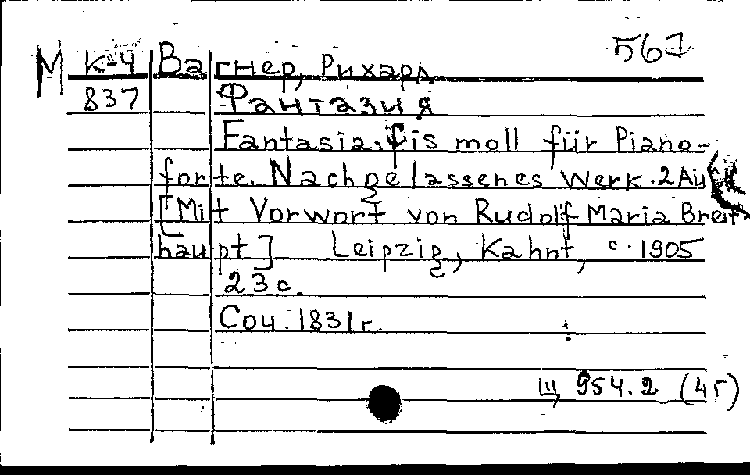 561
М К-4 Вагнер, Рихард
837 Фантазия
Fantasia. fis moll für Piano-
forte. Nachgelassenes Werk. 2 Aufl
[Mit Vorwort von Rudolf Maria Breit
haupt] Leipzig, Kahnt, c. 1905
23 с.
Соч. 1831 г.
Ш 954.2 (4г)